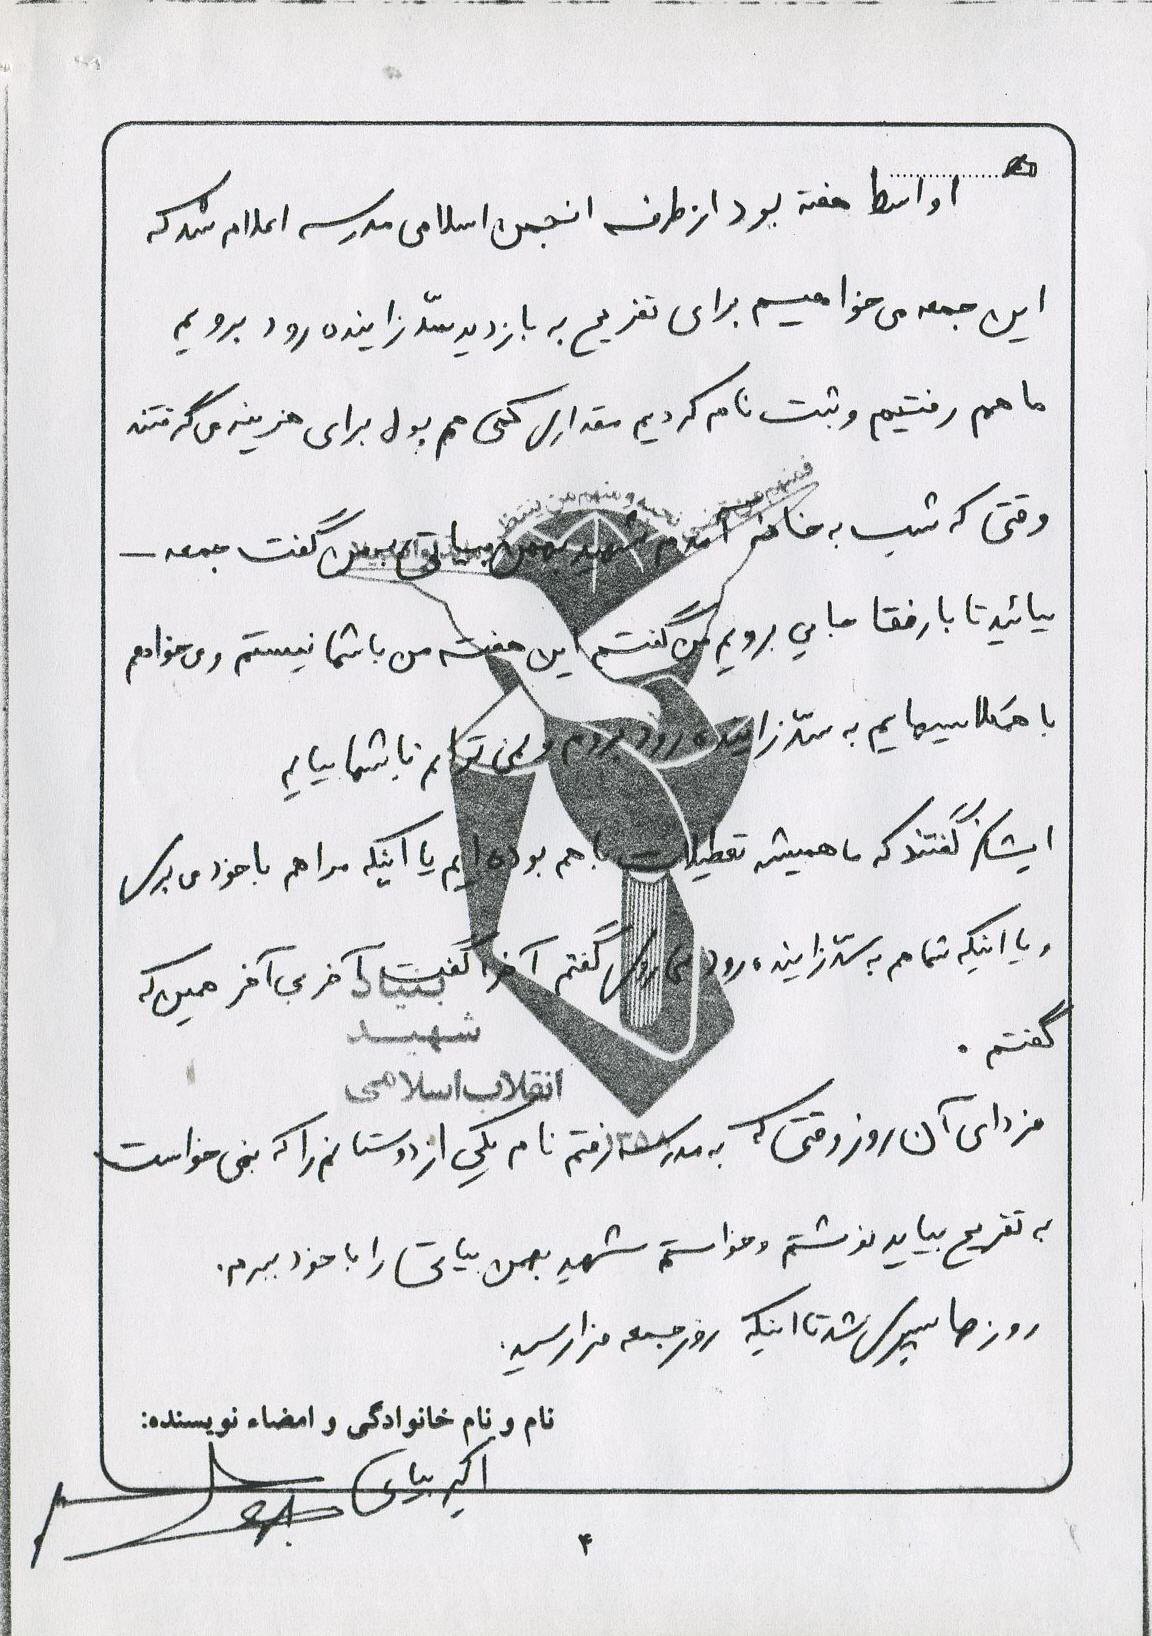 اواسط هفته بود از طرف انجمن اسلامی مدرسه اعلام شد که
این جمعه می خواهیم برای تفریح به بازدید سدّ زاینده رود برویم
ما هم رفتیم و ثبت نام کردیم مقداری کمی هم پول برای هزینه می گرفتند
وقتی که شب به خانه آمدم شهید بهمن بیاتی بمن گفت جمعه –
بیائید تا با رفقا جایی برویم من گفتم این هفته من با شما نیستم و می خواهم
با همکلاسیهایم به سدّ زاینده رود بروم و نمی توانم با شما بیایم
ایشان گفتند که ما همیشه تعطیلات با هم بوده ایم یا اینکه مرا هم با خود می بری
و یا اینکه شما هم به سدّ زاینده رود نمی روی گفتم آخر گفت آخر بی آخر همین که
گفتم .
فردای آن روز وقتی که به مدرسه رفتم نام یکی از دوستانم را که نمی خواست
به تفریح بیاید نوشتم و خواستم شهید بهمن بیاتی را با خود ببرم.
روزها سپری شد تا اینکه روز جمعه فرا رسید.
بنیاد
شهید
انقلاب اسلامی
نام و نام خانوادگی و امضاء نویسنده:
اکبر بیاتی
۴